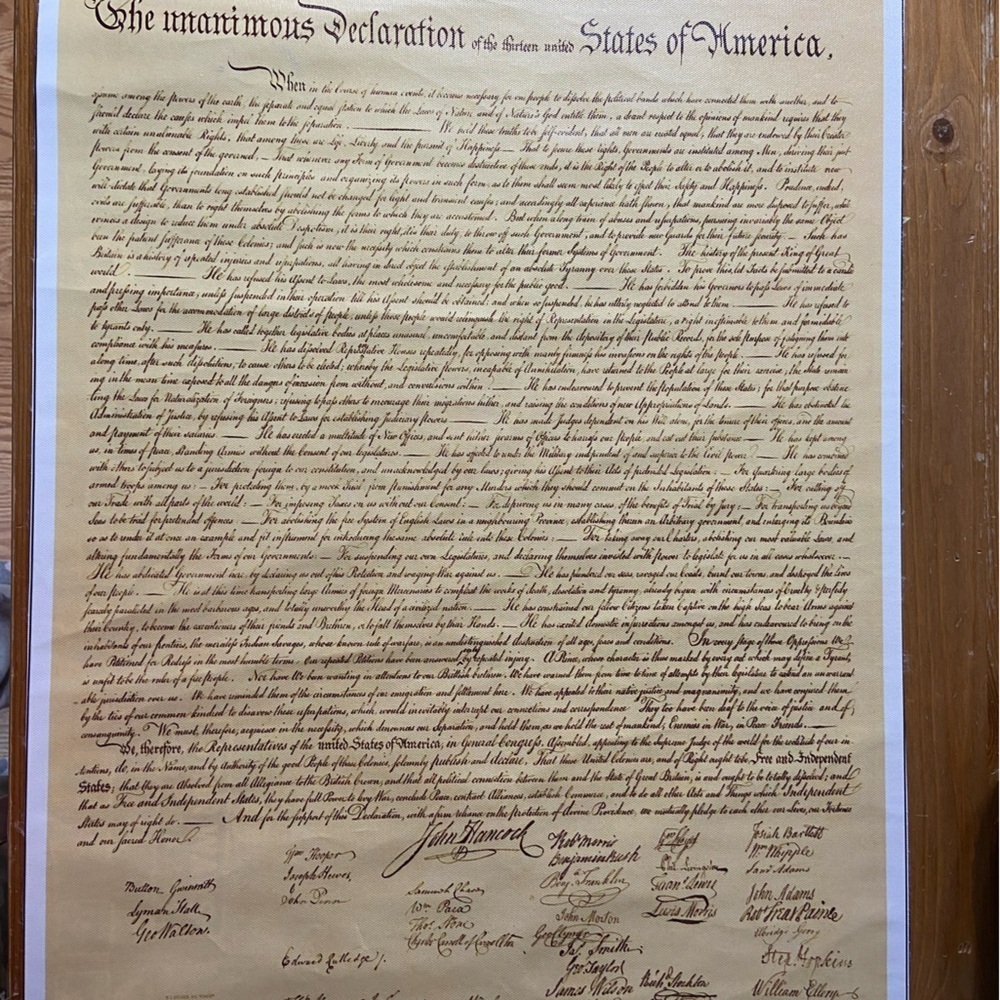 The unanimous Declaration of the thirteen united States of America,
When in the Course of human events, it becomes necessary for one people to dissolve the political bands which have connected them with another, and to
among the powers of the earth, the separate and equal station to which the Laws of Nature and of Nature's God entitle them, a decent respect to the opinions of mankind requires that they
should declare the causes which impel them to the separation. We hold these truths to be self-evident, that all men are created equal, that they are endowed by their Creator
with certain unalienable Rights, that among these are Life, Liberty and the pursuit of Happiness.— That to secure these rights, Governments are instituted among Men, deriving their just
powers from the consent of the governed,— That whenever any Form of Government becomes destructive of these ends, it is the Right of the People to alter or to abolish it, and to institute new
Government, laying its foundation on such principles and organizing its powers in such form, as to them shall seem most likely to effect their Safety and Happiness. Prudence, indeed,
will dictate that Governments long established should not be changed for light and transient causes; and accordingly all experience hath shewn, that mankind are more disposed to suffer, while
evils are sufferable, than to right themselves by abolishing the forms to which they are accustomed. But when a long train of abuses and usurpations, pursuing invariably the same Object
evinces a design to reduce them under absolute Despotism, it is their right, it is their duty, to throw off such Government, and to provide new Guards for their future security.— Such has
been the patient sufferance of these Colonies; and such is now the necessity which constrains them to alter their former Systems of Government. The history of the present King of Great
Britain is a history of repeated injuries and usurpations, all having in direct object the establishment of an absolute Tyranny over these States. To prove this, let Facts be submitted to a candid
world. He has refused his Assent to Laws, the most wholesome and necessary for the public good. He has forbidden his Governors to pass Laws of immediate
and pressing importance, unless suspended in their operation till his Assent should be obtained; and when so suspended, he has utterly neglected to attend to them. He has refused to
pass other Laws for the accommodation of large districts of people, unless those people would relinquish the right of Representation in the Legislature, a right inestimable to them and formidable
to tyrants only. He has called together legislative bodies at places unusual, uncomfortable, and distant from the depository of their public Records, for the sole purpose of fatiguing them into
compliance with his measures. He has dissolved Representative Houses repeatedly, for opposing with manly firmness his invasions on the rights of the people. He has refused for
a long time, after such dissolutions, to cause others to be elected; whereby the Legislative powers, incapable of Annihilation, have returned to the People at large for their exercise; the State remain-
ing in the mean time exposed to all the dangers of invasion from without, and convulsions within. He has endeavoured to prevent the population of these States; for that purpose obstruc-
ting the Laws for Naturalization of Foreigners; refusing to pass others to encourage their migrations hither, and raising the conditions of new Appropriations of Lands. He has obstructed the
Administration of Justice, by refusing his Assent to Laws for establishing Judiciary powers. He has made Judges dependent on his Will alone, for the tenure of their offices, and the amount
and payment of their salaries. He has erected a multitude of New Offices, and sent hither swarms of Officers to harrass our people, and eat out their substance. He has kept among
us, in times of peace, Standing Armies without the Consent of our legislatures. He has affected to render the Military independent of and superior to the Civil power. He has combined
with others to subject us to a jurisdiction foreign to our constitution, and unacknowledged by our laws; giving his Assent to their Acts of pretended Legislation:— For Quartering large bodies of
armed troops among us:— For protecting them, by a mock Trial from punishment for any Murders which they should commit on the Inhabitants of these States:— For cutting off
our Trade with all parts of the world:— For imposing Taxes on us without our Consent:— For depriving us in many cases, of the benefits of Trial by Jury:— For transporting us beyond
Seas to be tried for pretended offences.— For abolishing the free System of English Laws in a neighbouring Province, establishing therein an Arbitrary government, and enlarging its Boundaries
so as to render it at once an example and fit instrument for introducing the same absolute rule into these Colonies:— For taking away our Charters, abolishing our most valuable Laws, and
altering fundamentally the Forms of our Governments:— For suspending our own Legislatures, and declaring themselves invested with power to legislate for us in all cases whatsoever.—
He has abdicated Government here, by declaring us out of his Protection and waging War against us. He has plundered our seas, ravaged our Coasts, burnt our towns, and destroyed the lives
of our people. He is at this time transporting large Armies of foreign Mercenaries to compleat the works of death, desolation and tyranny, already begun with circumstances of Cruelty & perfidy
scarcely paralleled in the most barbarous ages, and totally unworthy the Head of a civilized nation. He has constrained our fellow Citizens taken Captive on the high Seas to bear Arms against
their Country, to become the executioners of their friends and Brethren, or to fall themselves by their Hands. He has excited domestic insurrections amongst us, and has endeavoured to bring on the
inhabitants of our frontiers, the merciless Indian Savages, whose known rule of warfare, is an undistinguished destruction of all ages, sexes and conditions. In every stage of these Oppressions We
have Petitioned for Redress in the most humble terms: Our repeated Petitions have been answered by repeated injury. A Prince, whose character is thus marked by every act which may define a Tyrant,
is unfit to be the ruler of a free people. Nor have We been wanting in attentions to our Brittish brethren. We have warned them from time to time of attempts by their legislature to extend an unwarrant-
able jurisdiction over us. We have reminded them of the circumstances of our emigration and settlement here. We have appealed to their native justice and magnanimity, and we have conjured them
by the ties of our common kindred to disavow these usurpations, which, would inevitably interrupt our connections and correspondence. They too have been deaf to the voice of justice and of
consanguinity. We must, therefore, acquiesce in the necessity, which denounces our Separation, and hold them, as we hold the rest of mankind, Enemies in War, in Peace Friends.
We, therefore, the Representatives of the united States of America, in General Congress, Assembled, appealing to the Supreme Judge of the world for the rectitude of our in-
tentions, do, in the Name, and by Authority of the good People of these Colonies, solemnly publish and declare, That these United Colonies are, and of Right ought to be Free and Independent
States; that they are Absolved from all Allegiance to the British Crown, and that all political connection between them and the State of Great Britain, is and ought to be totally dissolved; and
that as Free and Independent States, they have full Power to levy War, conclude Peace, contract Alliances, establish Commerce, and to do all other Acts and Things which Independent
States may of right do. And for the support of this Declaration, with a firm reliance on the protection of divine Providence, we mutually pledge to each other our Lives, our Fortunes
and our sacred Honor.
John Hancock
Button Gwinnett
Lyman Hall
Geo Walton.
Wm Hooper
Joseph Hewes,
John Penn
Edward Rutledge /.
Samuel Chase
Wm. Paca
Thos. Stone
Charles Carroll of Carrollton
Robt Morris
Benjamin Rush
Benja. Franklin
John Morton
Geo Clymer
Jas. Smith
Geo. Taylor
James Wilson
Phil. Livingston
Frans. Lewis
Lewis Morris
Richd. Stockton
Josiah Bartlett
Wm Whipple
Saml Adams
John Adams
Robt Treat Paine
Elbridge Gerry
Step. Hopkins
William Ellery